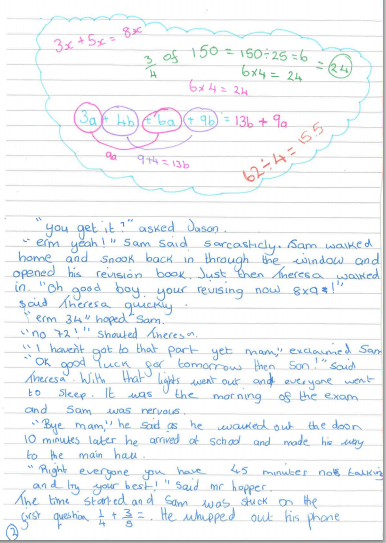 3x + 5x = 8x
3/4 of 150 = 150÷25=6
6x4 = 24 = 24
6x4 = 24
3a + 4b + 6a + 9b = 13b + 9a
9a 9+4=13b
62÷4=15.5
"you get it?" asked Jason.
"erm yeah!" Sam said sarcasticly. Sam walked
home and snook back in through the window and
opened his revision book. Just then Theresa walked
in. "Oh good boy, your revising now 8x9=!"
said Theresa quickly.
"erm 34" hoped Sam.
"no 72!" shouted Theresa.
"I havent got to that part yet mam," exclaimed Sam
"Ok good luck for tomorrow then Son!" said
Theresa. With that lights went out and everyone went
to sleep. It was the morning of the exam
and Sam was nervous.
"Bye mam," he said as he walked out the door
10 minutes later he arrived at school and made his way
to the main hall.
"Right everyone you have 45 minutes no talking
and try your best!" Said mr hopper.
The time started and Sam was stuck on the
first question 1/4 + 3/5 =. He whipped out his phone
2